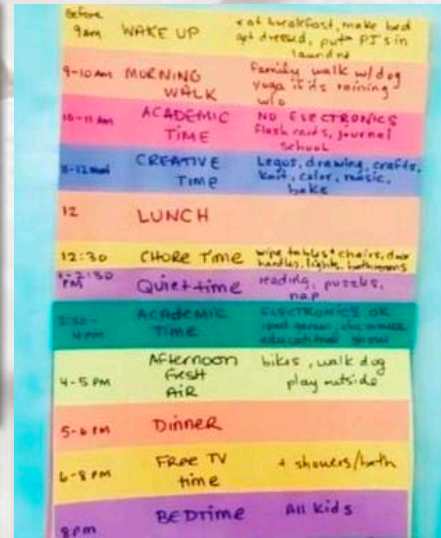 Before
9am WAKE UP eat breakfast, make bed
get dressed, put PJ's in
laundry
9-10am MORNING WALK family walk w/ dog
yoga if its raining
10-11 AM ACADEMIC TIME NO ELECTRONICS
flash cards, journal
school
CREATIVE TIME Legos, drawing, crafts,
knit, color, music,
bake
12 LUNCH
12:30 CHORE TIME wipe tables + chairs, door
handles, lights, bathrooms
PM Quiet time reading, puzzles,
nap
2:30-4PM ACADEMIC TIME ELECTRONICS OK
educational show
4-5 PM Afternoon FRESH AIR bikes, walk dog
play outside
5-6 PM Dinner
6-8 PM FREE TV time + showers/bath
8pm BEDTIME All kids